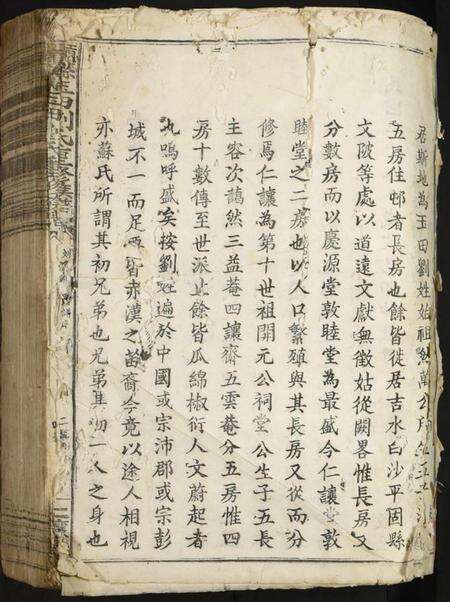 居斯地為玉田劉姓始祖
五房住邨者長房也餘皆徙居吉水白沙平固縣
文陂等處以道遠文獻無徵姑從闕畧惟長房又
分數房而以慶源堂敦睦堂為最盛今仁讓堂敦
睦堂之二房也以人口繁殖與其長房又從而分
修焉仁讓為第十世祖開元公祠堂公生子五長
主容次藹然三益菴四讓齋五雲菴分五房惟四
房十數傳至世派止餘皆瓜綿椒衍人文蔚起者
嗚呼盛矣按劉姓遍於中國或宗沛郡或宗彭
城不一而足皆赤漢之苗裔今竟以途人相視
亦蘇氏所謂其初兄弟也兄弟其初一人之身也